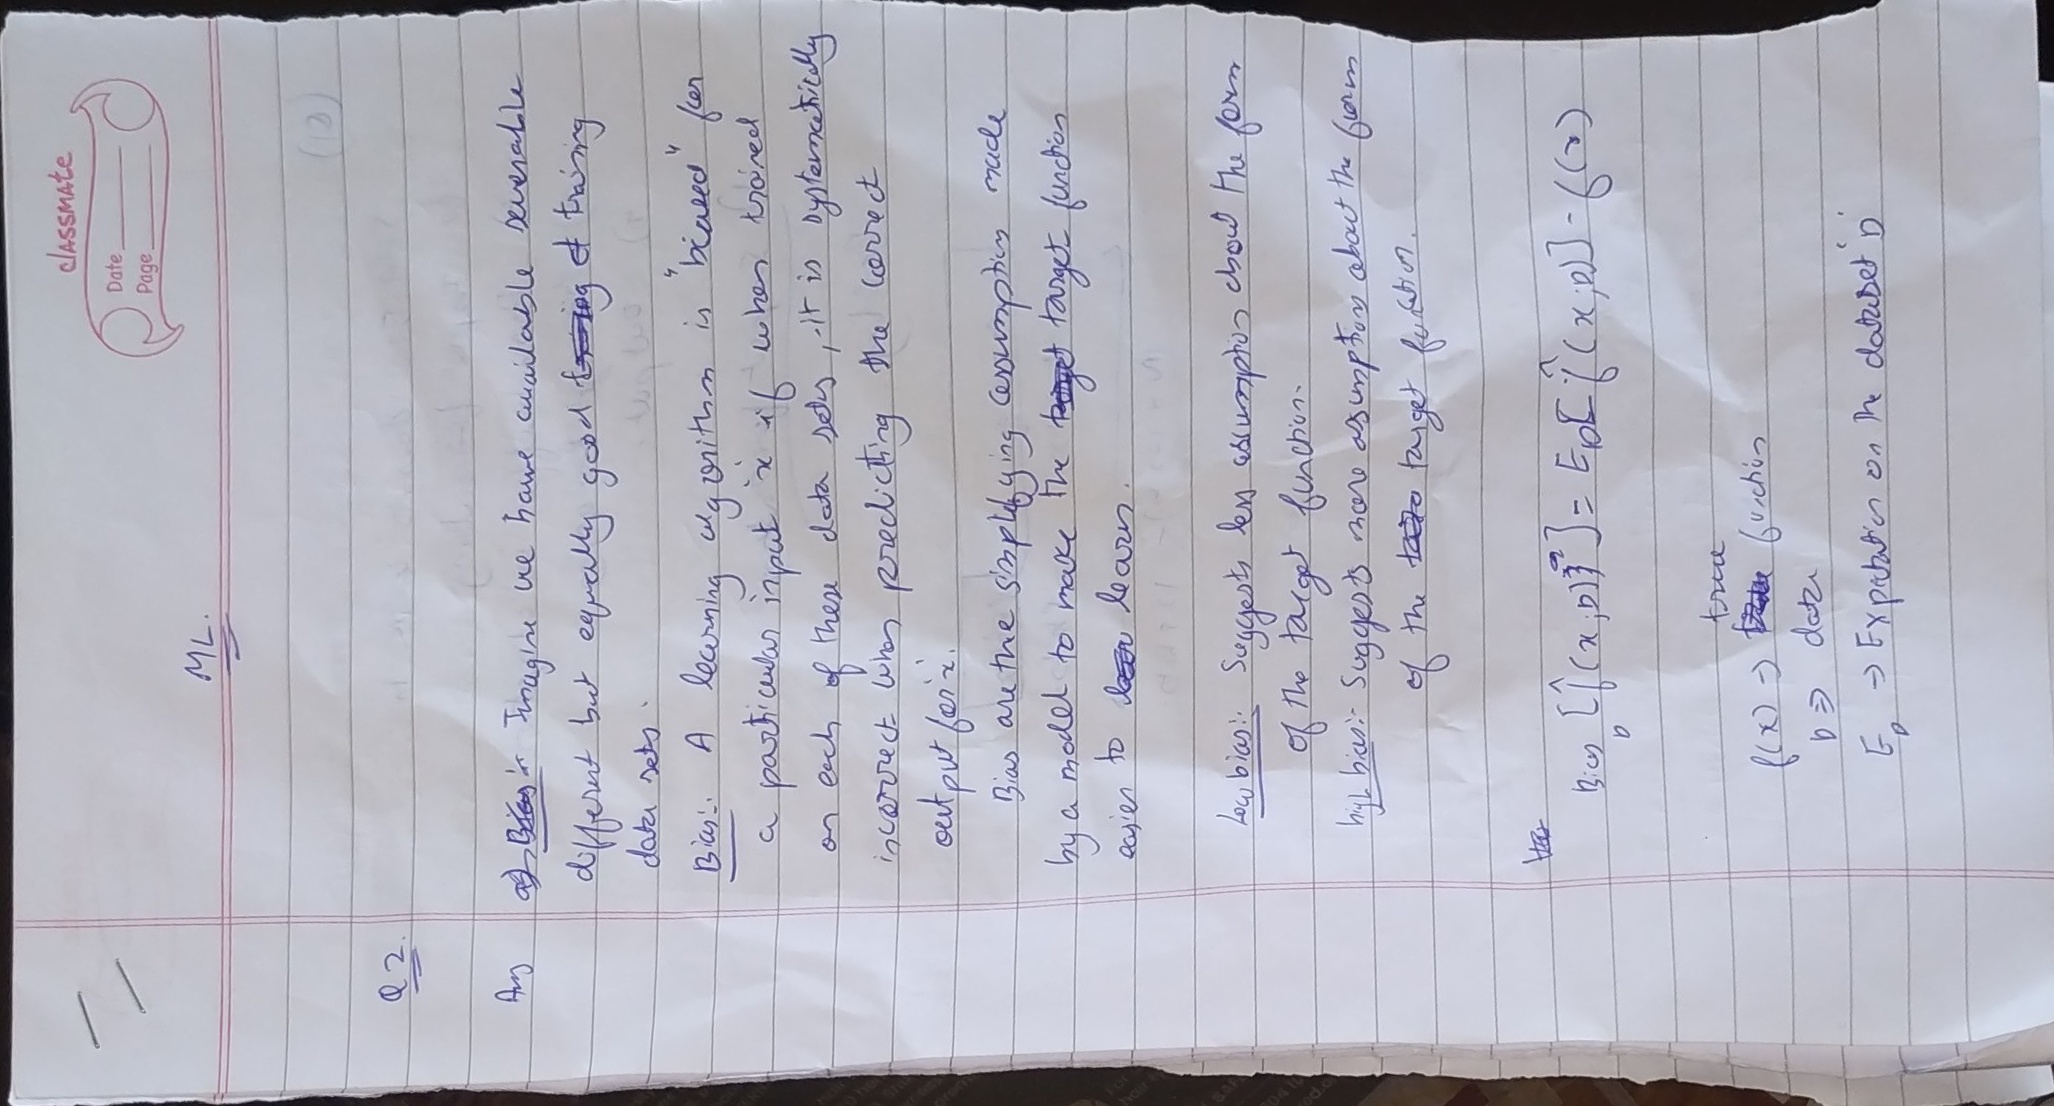 classmate
Date
Page
ML.
Q 2.
Ans Imagine we have available severable
different but equally good training
data sets.
Bias:. A learning algorithm is "biased" for
a particular input 'x' if when trained
on each of these data sets, it is systematically
incorrect when predicting the correct
output for 'x'.
Bias are the simplifying assumption made
by a model to make the target function
easier to learn.
Low bias:. Suggests less assumption about the form
of the target function.
high bias:- Suggests more assumptions about the form
of the target function.
Bias D [f̂(x;D)] = E_D[f̂(x;D)] - f(x)
f(x) → true function
D ⇒ data
E_D → Expectation on the dataset 'D'